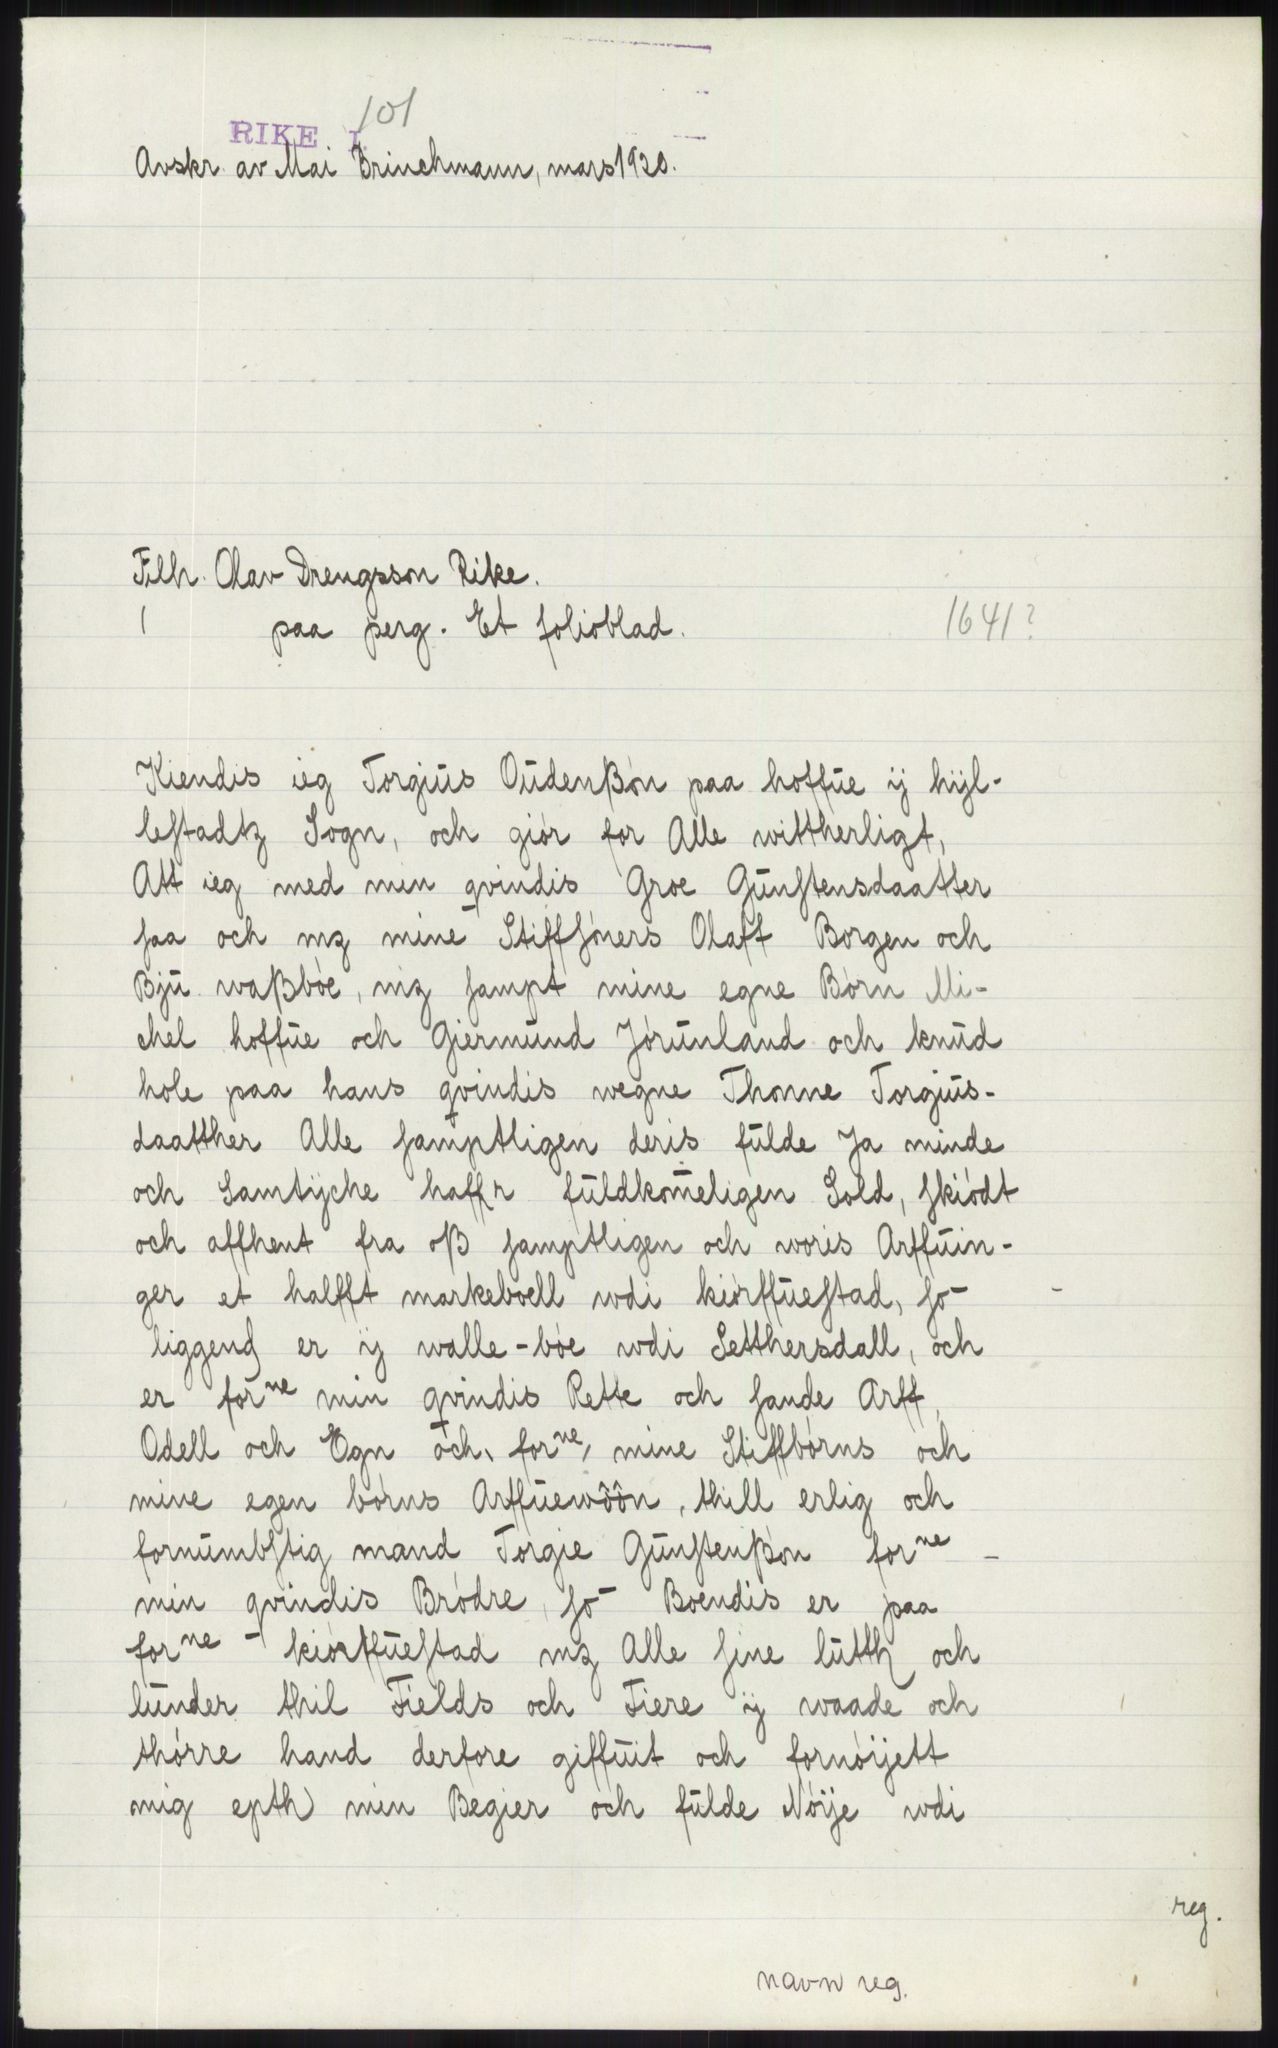 101
RIKE I.
Avskr. av Mai Brinchmann, mars 1920.
Tilh. Olav Drengsson Rike.
paa perg. Et folioblad.
1641?
Kiendis ieg Torgiūs Oūdenßøn paa hoffūe ij hijl-
lestadtz Sogn, och giør for Alle wittherligt,
Att ieg med min qvindis Groe Gūnstensdaatter
saa och mz mine Stiffsøners Olaff Borgen och
Bjū waßbøe, mz sampt mine egne Børn Mi-
chel hoffūe och Giermūnd Jørūnland och knūd
hole paa hans qvindis wegne Thonne Torgiūs-
daatther Alle samptligen deris fūlde Ja minde
och Samtÿche haffr fūldkom̄eligen Sold, skiødt
och affhent fra oß samptligen och woris Arffūin-
ger et halfft markeboell wdi kiørffūestad, so
liggend er ij walle-bøe wdi Setthersdall, och
er forne min qvindis Rette och sande Arff,
Odell och Egn och, forne, mine Stiffbørns och
mine egen børns Arffūewôôn, thill erlig och
fornūmbstig mand Torgie Gūnstenßøn forne
min qvindis Brødre, so Boendis er paa
forne kiørffūestad mz Alle sine lūtth och
lūnder thil Fields och Fiere ij waade och
thørre hand derfore giffūit och fornøijett
mig epth min Begier och fūlde Nøije wdi
reg.
navn reg.